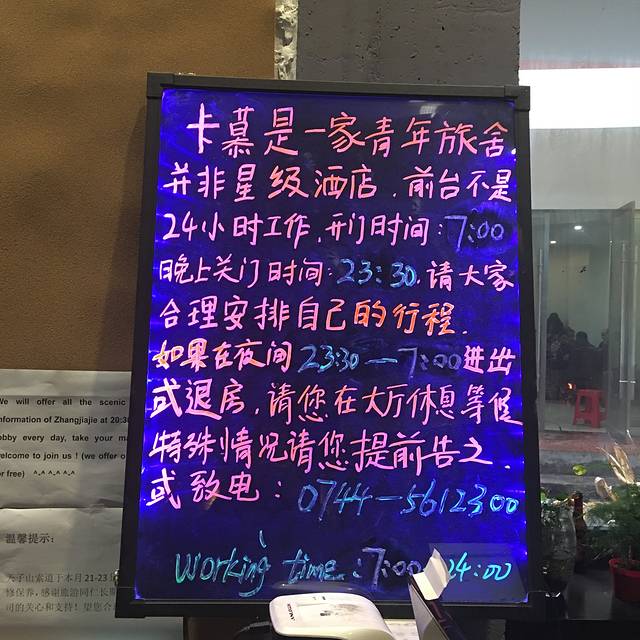 卡慕是一家青年旅舍.
并非星级酒店.前台不是
24小时工作.开门时间:7:00
晚上关门时间:23:30.请大家
合理安排自己的行程.
如果在夜间23:30—7:00进出
或退房.请您在大厅休息等候
特殊情况请您提前告之.
或致电:0744-5612300
working time:7:00 24:00
We will offer all the scenic
nformation of Zhangjiajie at 20:30
obby every day, take your ma
welcome to join us ! (we offer o
or free) ^-^ ^-^ ^-^
温馨提示:
天子山索道于本月21-23
修保养,感谢旅游同仁长期
司的关心和支持!望您合